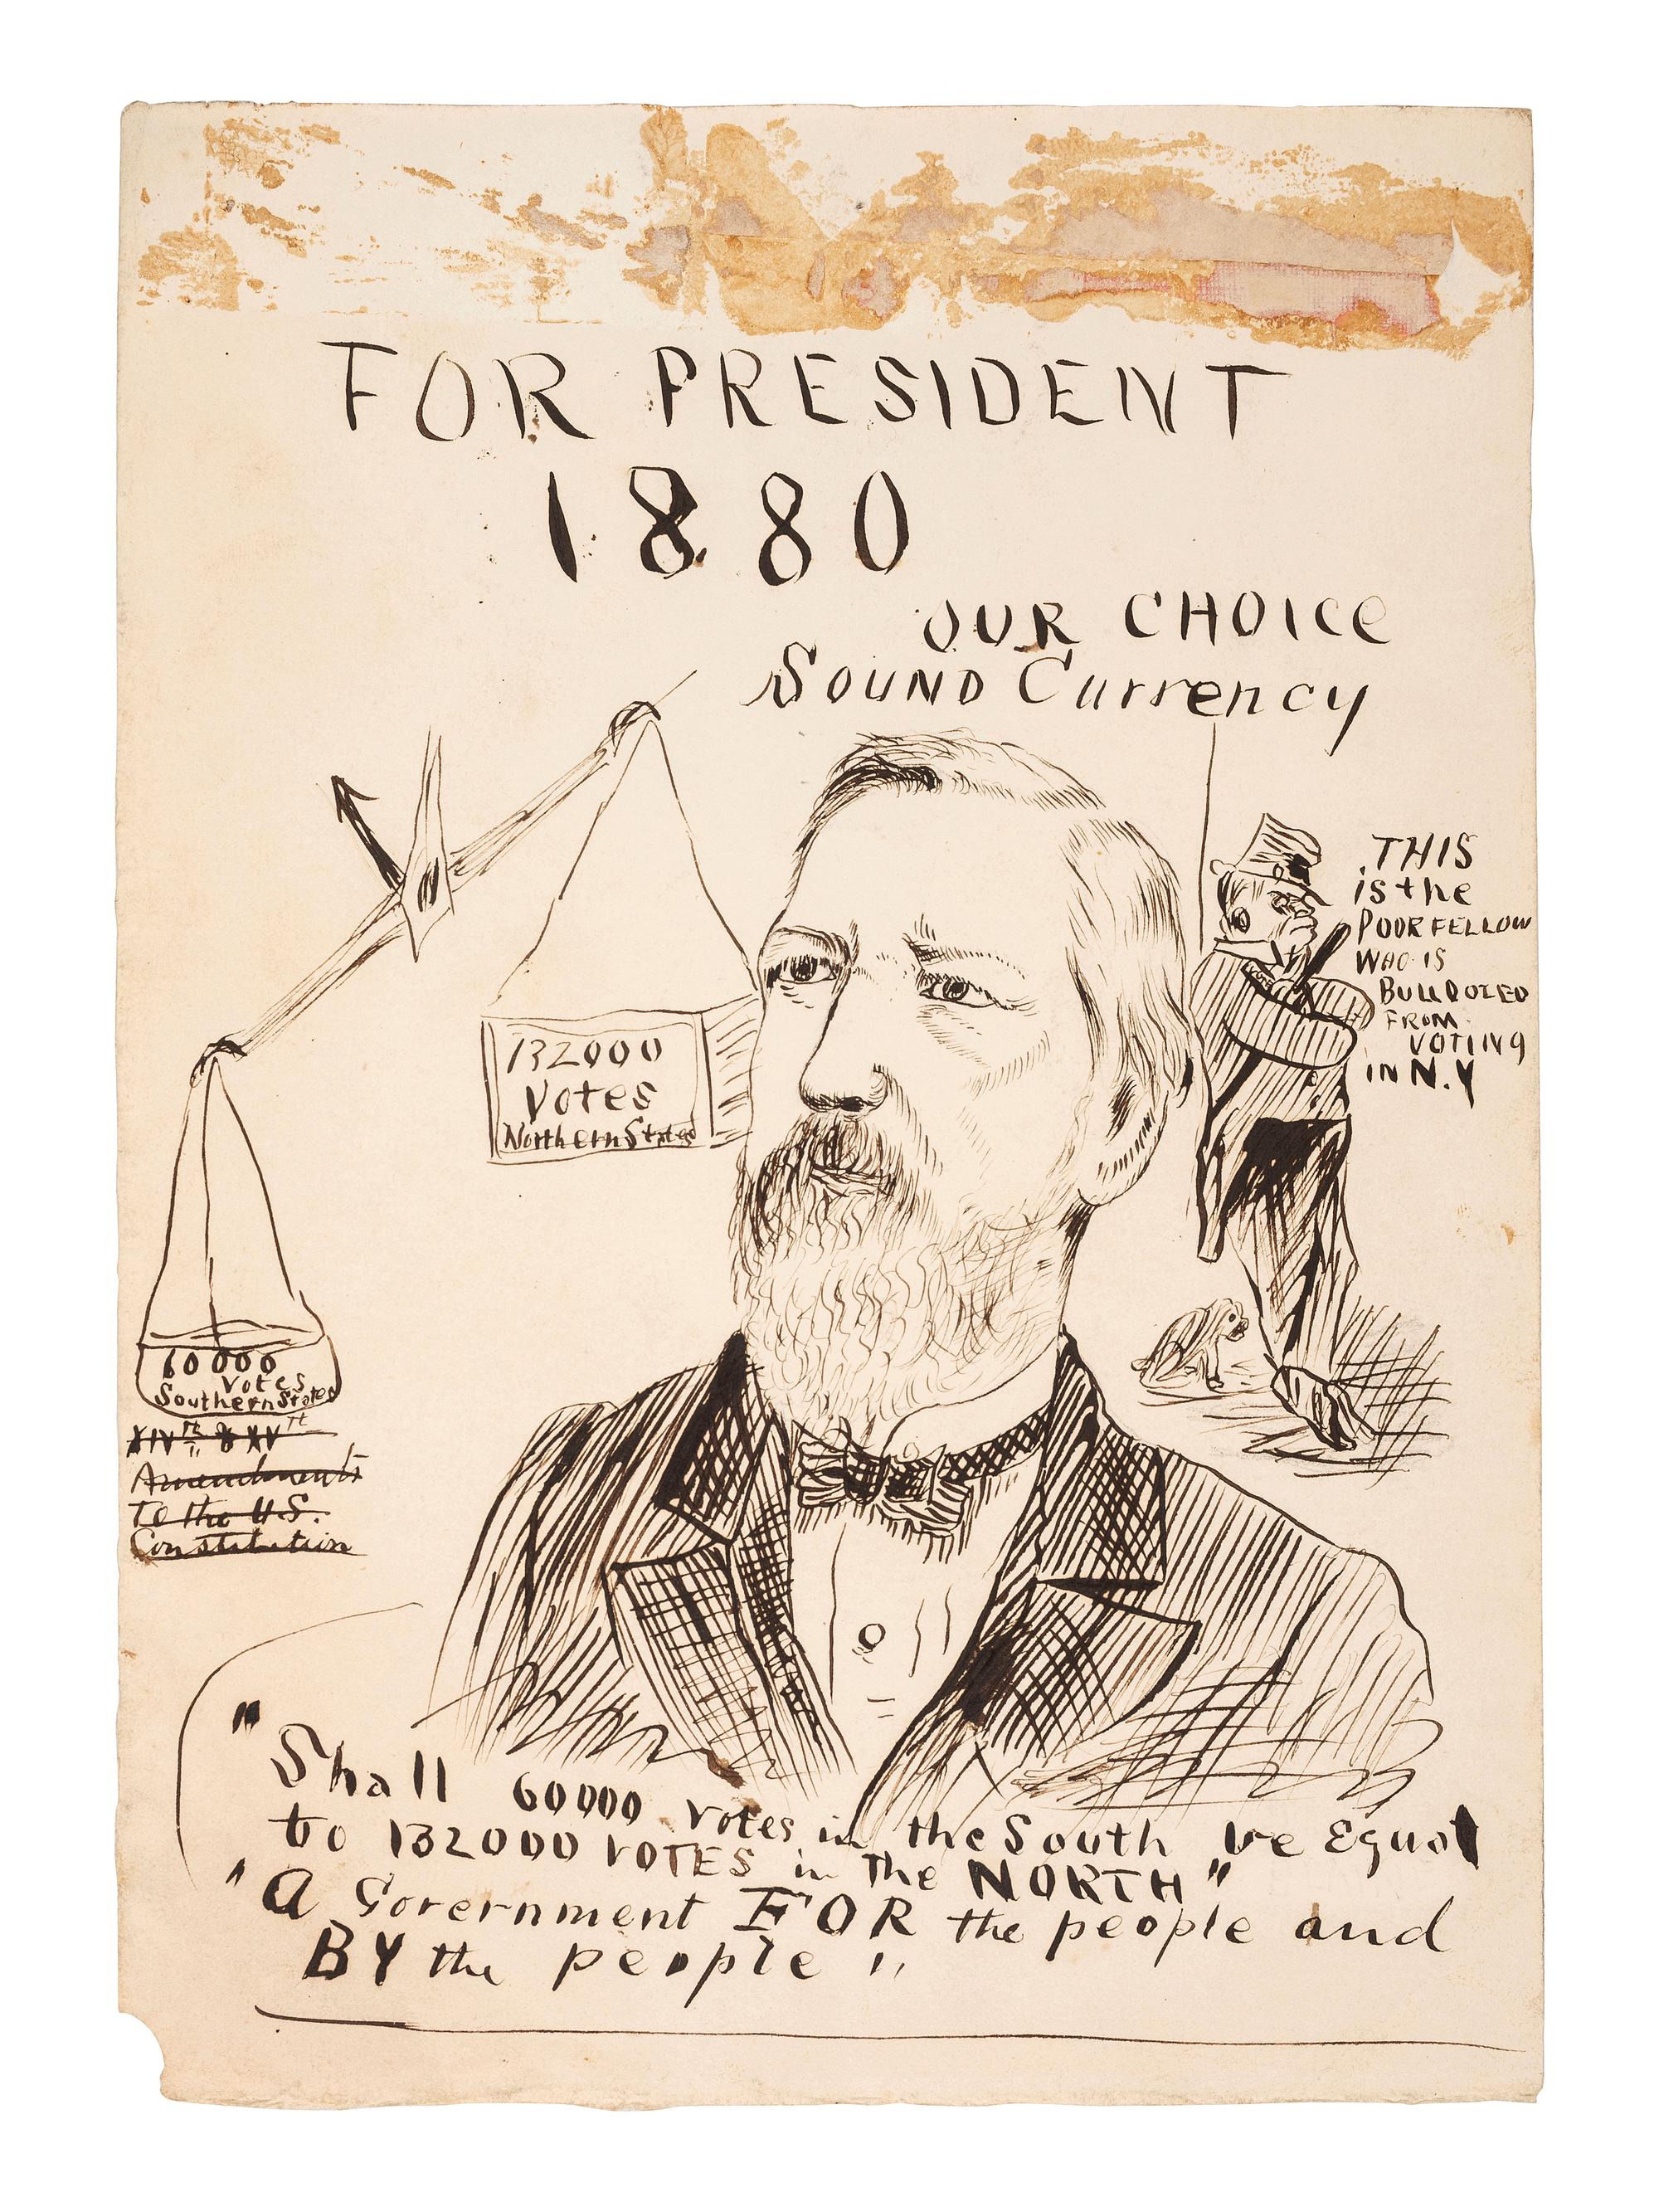 FOR PRESIDENT
1880
OUR CHOICE
SOUND Currency
THIS
is the
POOR FELLOW
WHO IS
BULLDOZED
FROM
VOTING
IN N.Y
132000
Votes
Northern States
60000
Votes
Southern States
XIVth & XVth
Amendments
To the U.S.
Constitution
"Shall 60000 Votes in the South be Equal
to 132000 VOTES in The NORTH"
"A Government FOR the people and
BY the people"